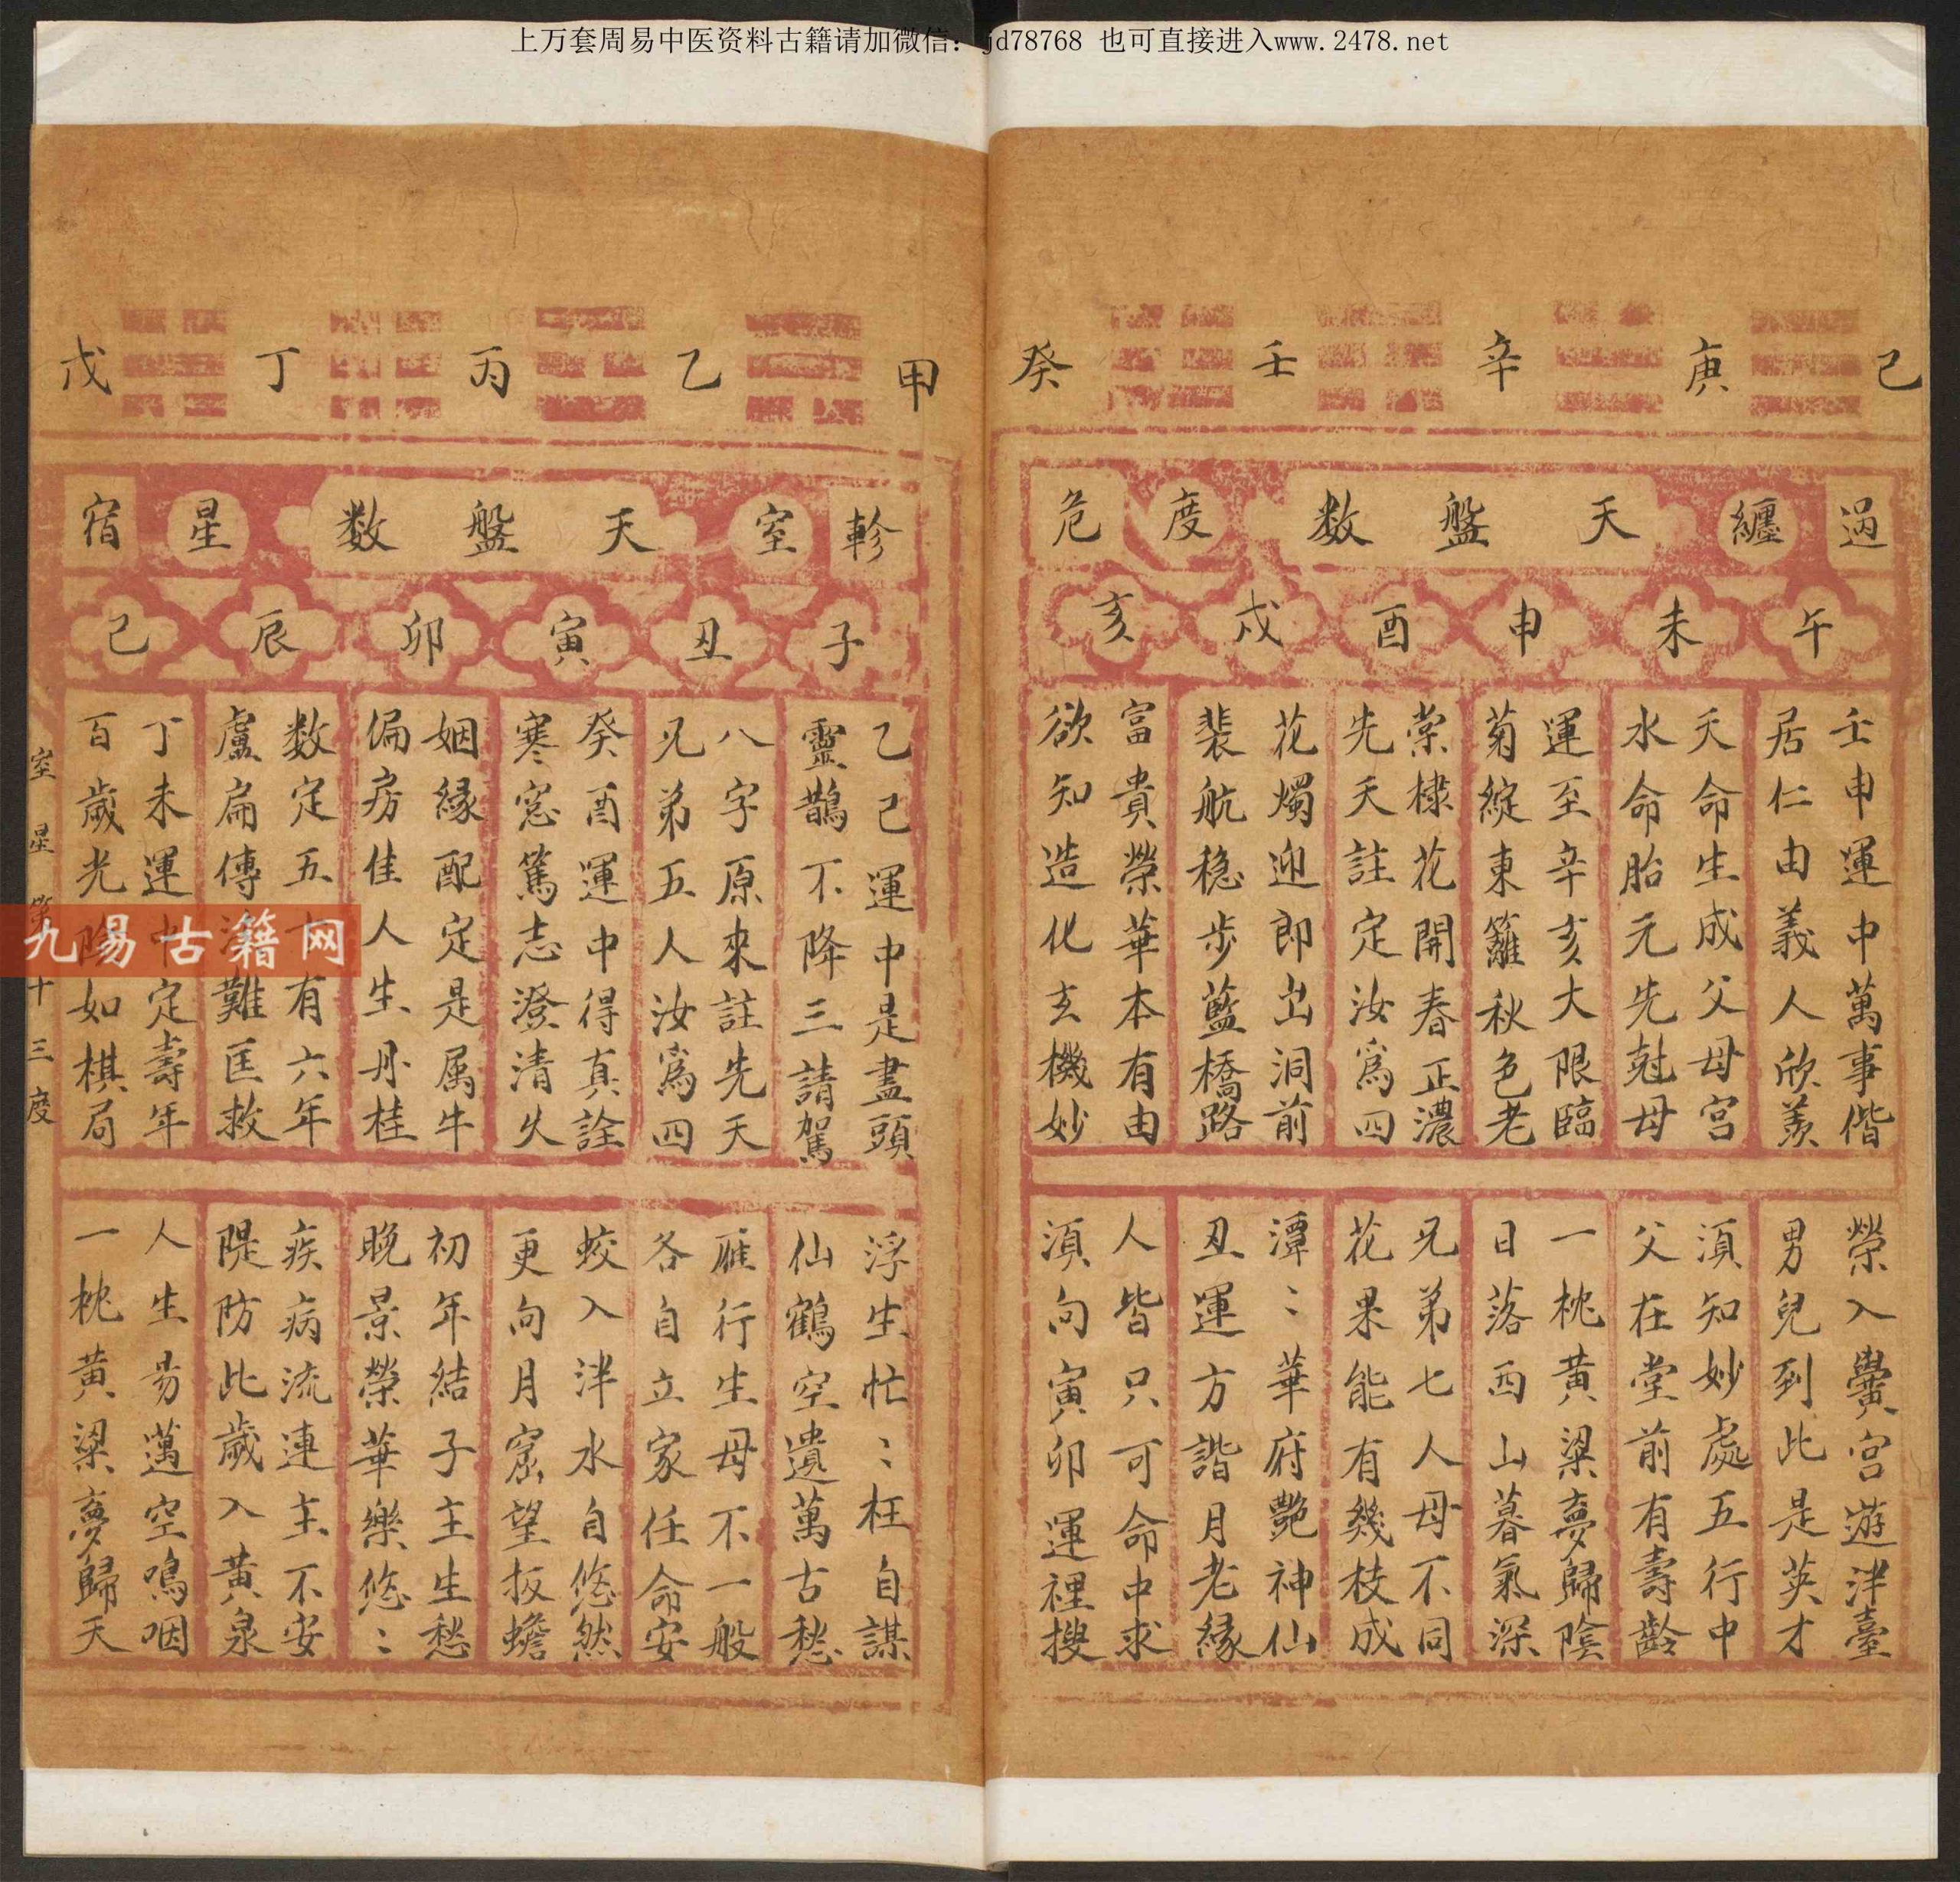 上万套周易中医资料古籍请加微信：jd78768 也可直接进入www.2478.net
己 庚 辛 壬 癸
過 纏 天盤数 度 危
午 未 申 酉 戌 亥
壬申運中萬事偕
居仁由義人欣羨
天命生成父母宮
水命胎元先尅母
運至辛亥大限臨
菊綻東籬秋色老
棠棣花開春正濃
先天註定汝為四
花燭迎郎出洞前
裴航稳步藍橋路
富貴榮華本有由
欲知造化玄機妙
榮入黌宮遊泮臺
男兒到此是英才
須知妙處五行中
父在堂前有壽齡
一枕黄粱夢歸陰
日落西山暮氣深
兄弟七人母不同
花果能有幾枝成
潭〻華府艷神仙
丑運方諧月老緣
人皆只可命中求
須向寅卯運裡搜
甲 乙 丙 丁 戊
軫 室 天盤数 星 宿
子 丑 寅 卯 辰 巳
乙巳運中是盡頭
靈鵲不降三請駕
八字原來註先天
兄弟五人汝爲四
癸酉運中得真詮
寒窓篤志澄清久
姻緣配定是属牛
偏房佳人生丹桂
数定五十有六年
盧扁傳 難匡救
丁未運中定壽年
百歲光陰如棋局
浮生忙〻枉自謀
仙鶴空遺萬古愁
雁行生母不一般
各自立家任命安
蛟入泮水自悠然
更向月窟望扳蟾
初年結子主生愁
晚景榮華樂悠〻
疾病流連主不安
隄防此歲入黄泉
人生易邁空鳴咽
一枕黄粱夢歸天
室星 第十三度
九易古籍网